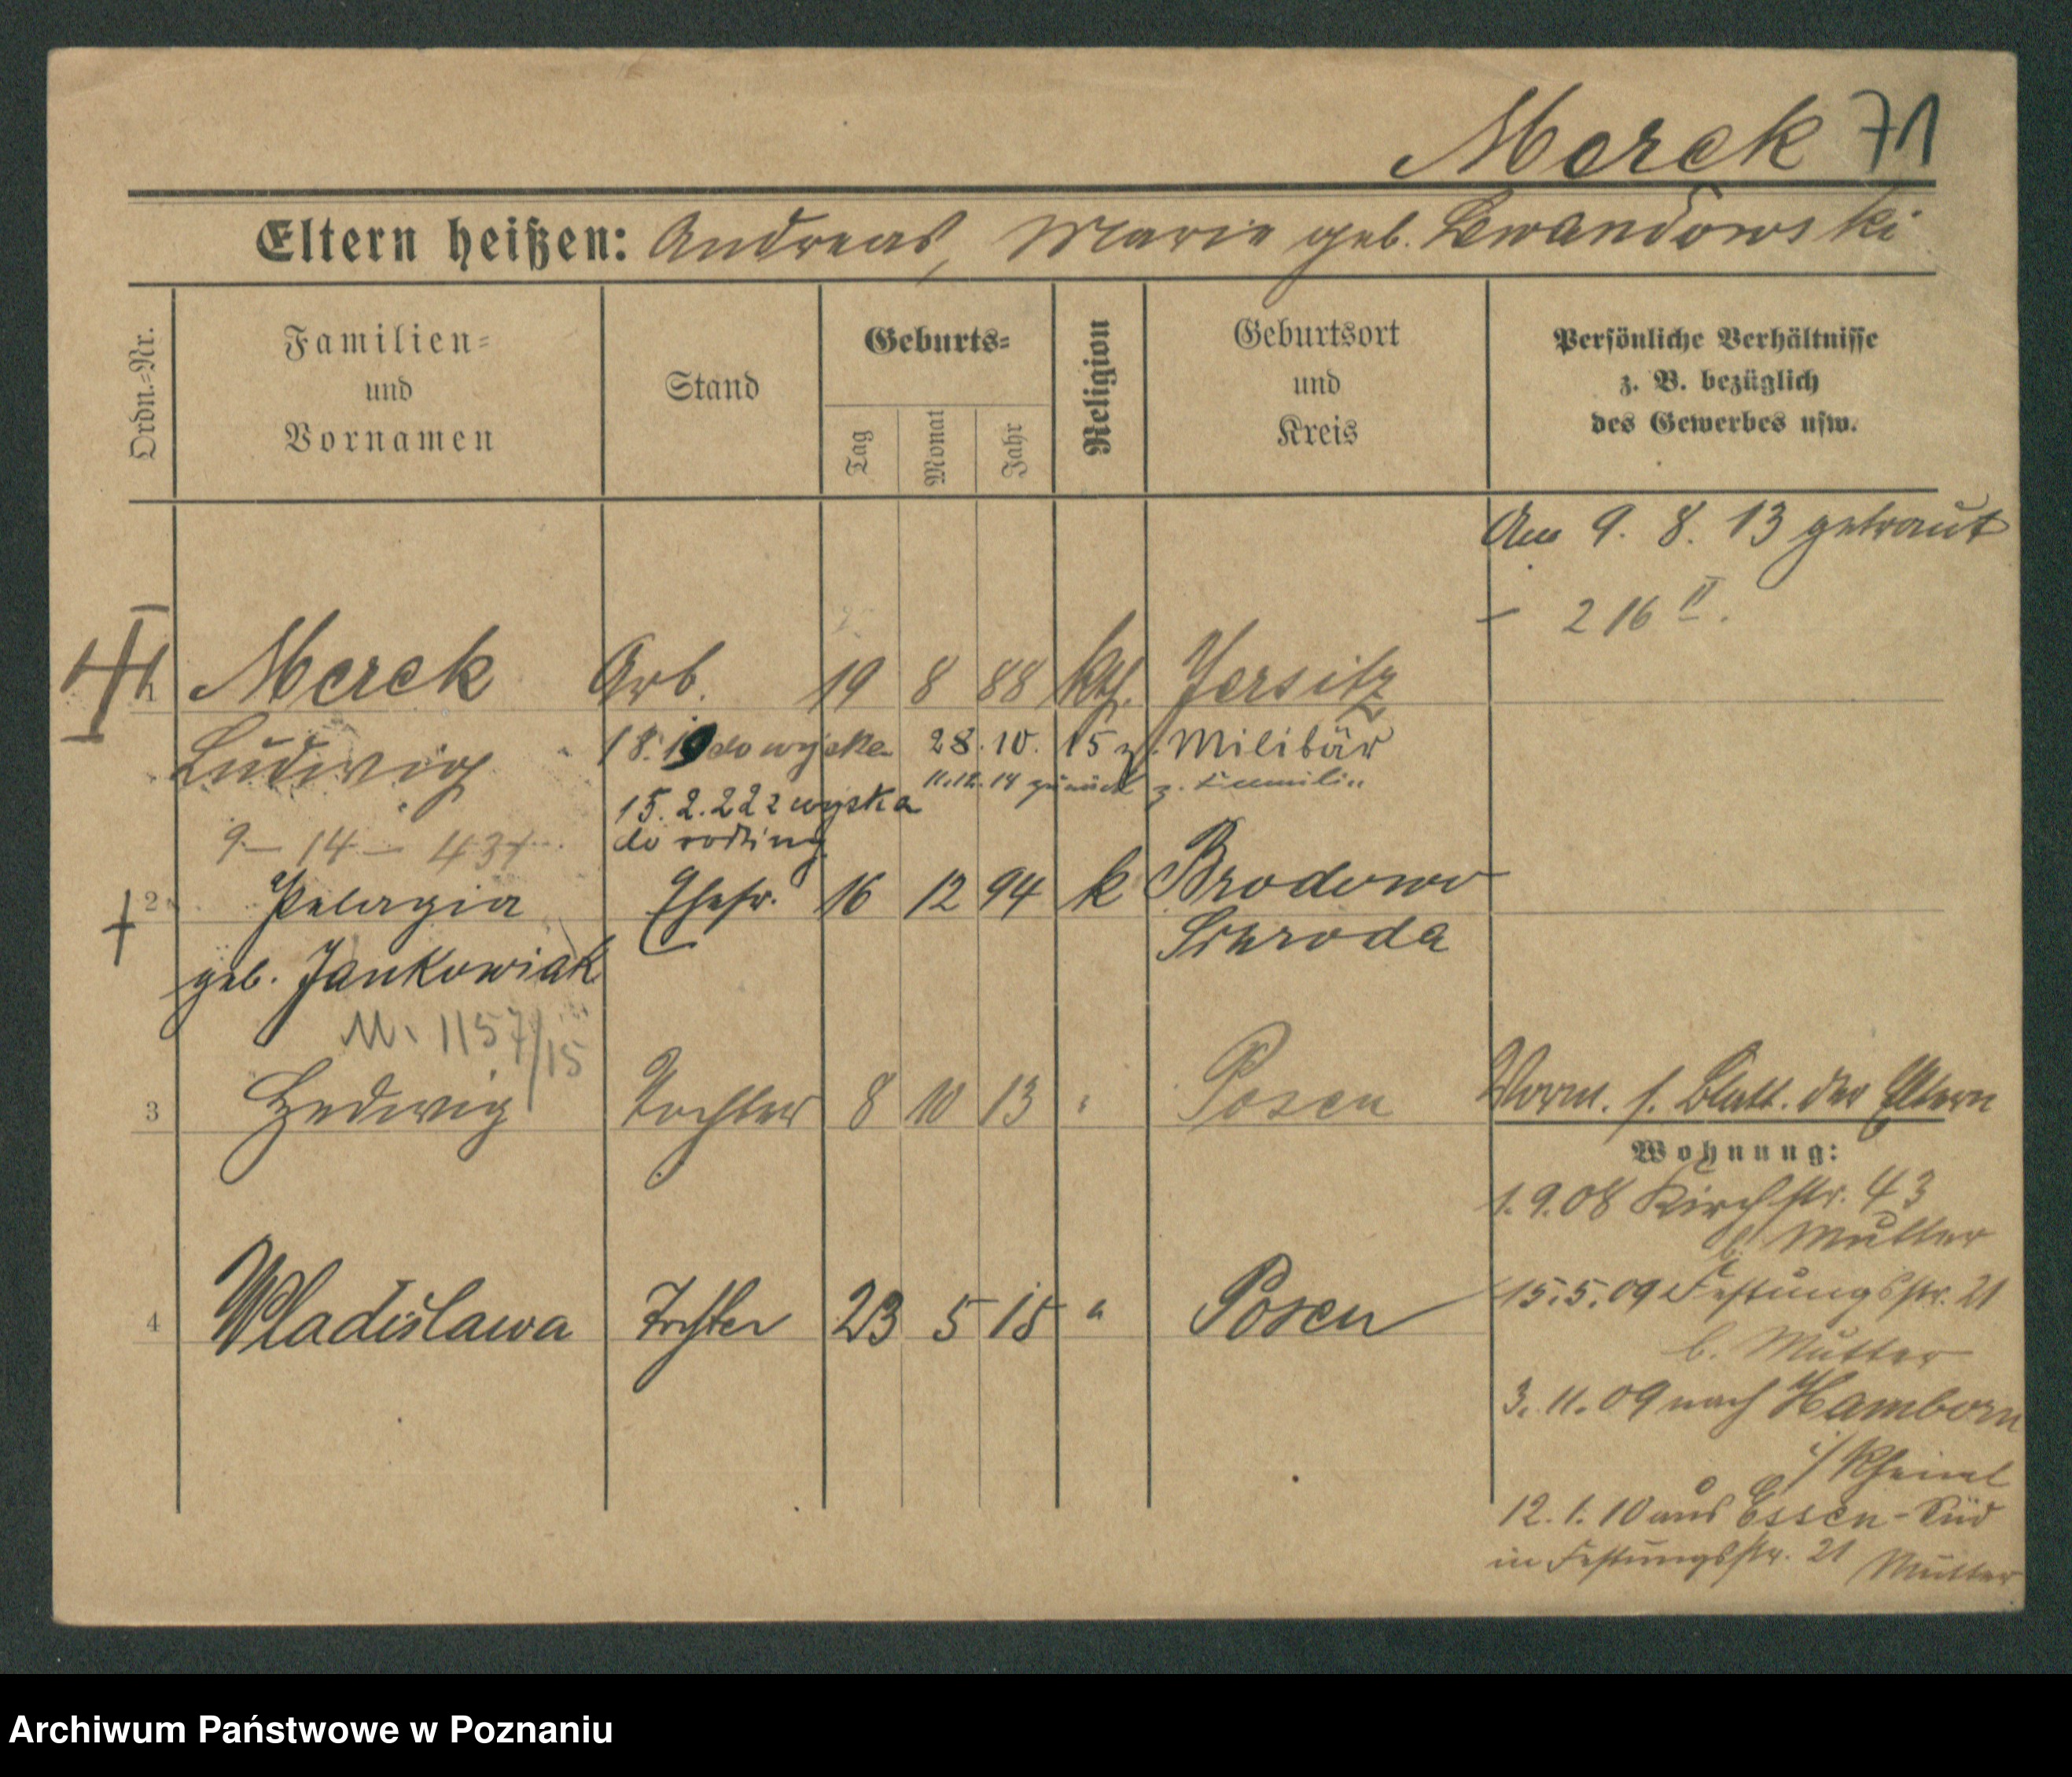 Merck 71
Eltern heißen: Andreas, Marie geb. Lewandowski
Ordn.-Nr.
Familien-
und
Vornamen
Stand
Geburts-
Tag
Monat
Jahr
Religion
Geburtsort
und
Kreis
Persönliche Verhältnisse
z. B. bezüglich
des Gewerbes usw.
Am 9. 8. 13 getraut
- 216 II.
1 Merck Arb. 19 8 88 kth. Jersitz
Ludwig
18. 19 do wojska 28. 10. 15 z. Militär
11.12.18 zurück z. Familie
15. 2. 22 z wojska
do rodziny
9 - 14 - 437
2 Pelagia Ehefr. 16 12 94 k Brodowo
Schroda
geb. Jankowiak
M. 1157/15
3 Hedwig Tochter 8 10 13 " Posen
Vorm. s. Blatt. der Eltern
Wohnung:
1. 9. 08 Kirchstr. 43
b. Mutter
4 Wladislawa Tochter 23 5 15 " Posen
15. 5. 09 Festungsstr. 21
b. Mutter
3. 11. 09 nach Hamborn
i/ Rheinl
12. 1. 10 aus Essen-Süd
in Festungsstr. 21 Mutter
Archiwum Państwowe w Poznaniu